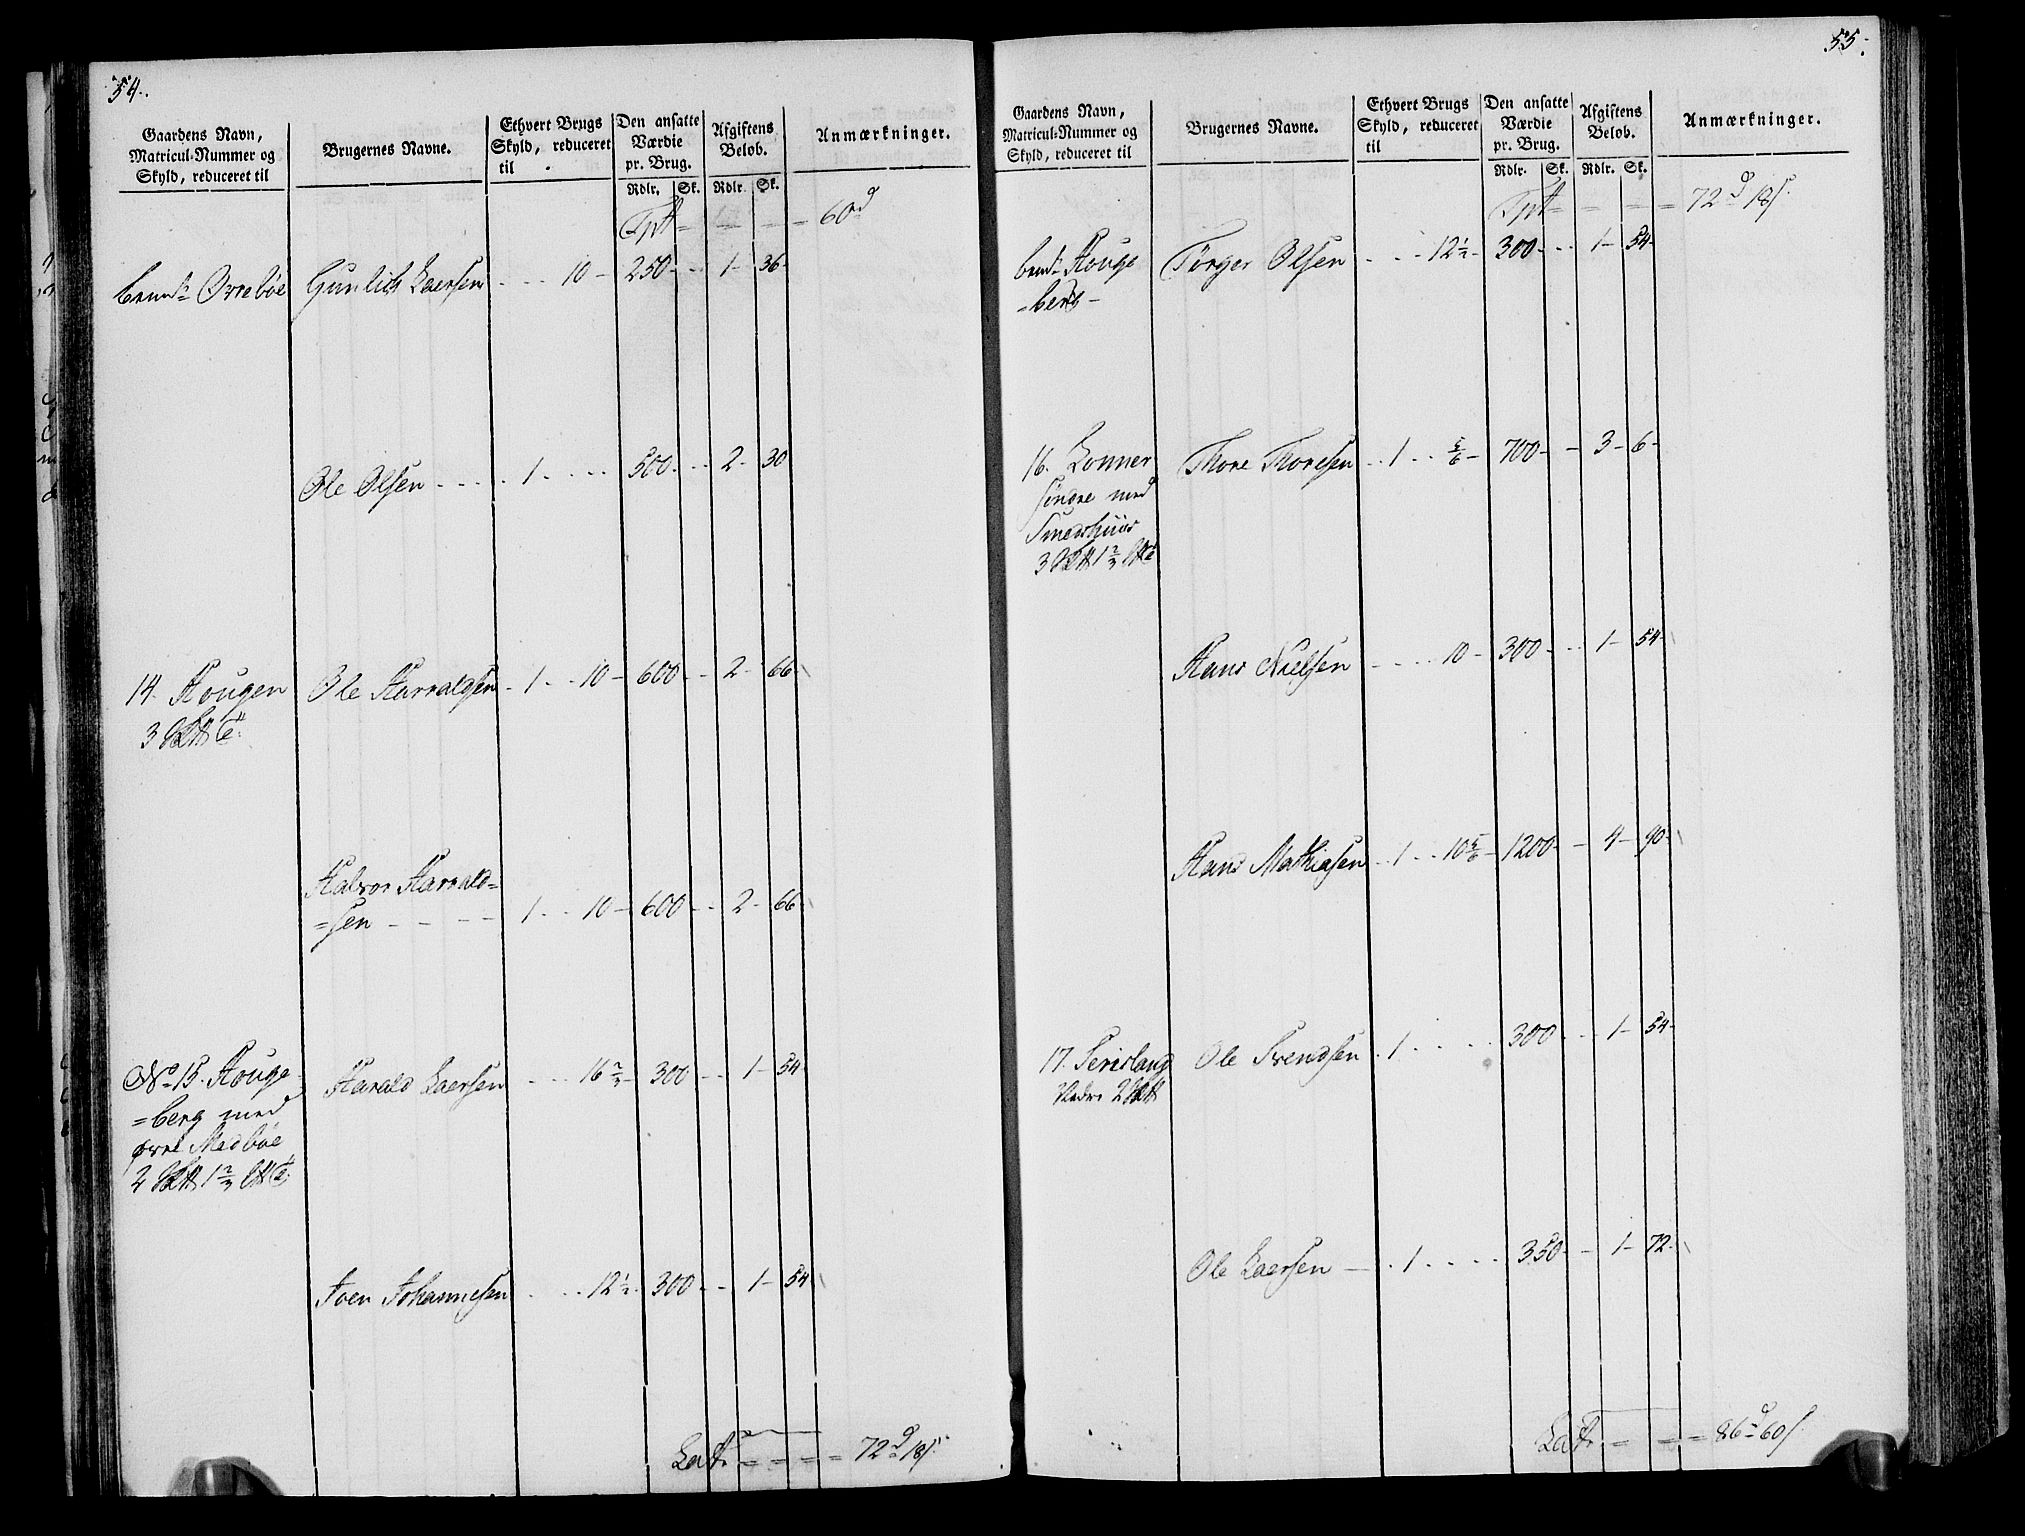 54.
Gaardens Navn, Matricul-Nummer og Skyld, reduceret til
Brugernes Navne.
Ethvert Brugs Skyld, reduceret til
Den ansatte Værdie pr. Brug.
Afgiftens Beløb.
Anmærkninger.
Rdlr. Sk. Rdlr. Sk.
Tpt = = = = 60 d
bemdt Ovrebøe Gunlich Laersen - - - 10 - 250 - - 1 - 36 -
Ole Olsen - - - - 1 - - - 500 - - 2 - 30
14. Hougen Ole Harraldsen - 1 - - 10 - 600 - - 2 - 66
3
Halvor Harrald=
=sen - - - - 1 - - 10 - 600 - - 2 - 66
No 15. Houge- Harald Laersen - - - 16 2/3 - 300 - - 1 - 54
=berg med
øvre Medbøe
2 1 2/3
Joen Johannesen - - - 12 1/2 - 300 - - 1 - 54
Lat. = = = = 72 d 18 s.
55.
Gaardens Navn, Matricul-Nummer og Skyld, reduceret til
Brugernes Navne.
Ethvert Brugs Skyld, reduceret til
Den ansatte Værdie pr. Brug.
Afgiftens Beløb.
Anmærkninger.
Rdlr. Sk. Rdlr. Sk.
Tpt = = = = 72 d 18 s.
bemdt Houge Törger Olsen - - - 12 1/2 - 300 - - 1 - 54 -
=berg -
16. Lonner Thore Thoresen - - 1 - - 5/6 - 700 - - 3 - 6 -
söndre med
Smedshuus
3 1 2/3
Hans Nielsen - - - - 10 - 300 - - 1 - 54 -
Hans Mathiasen - - 1 - - 10 5/6 - 1200 - - 4 - 90 -
17. Ole Svendsen - 1 - - - - 300 - - 1 - 54 -
Nedre 2
Ole Laersen - - 1 - - - - 350 - - 1 - 72 -
Lat. = = = 86 d 60 s.